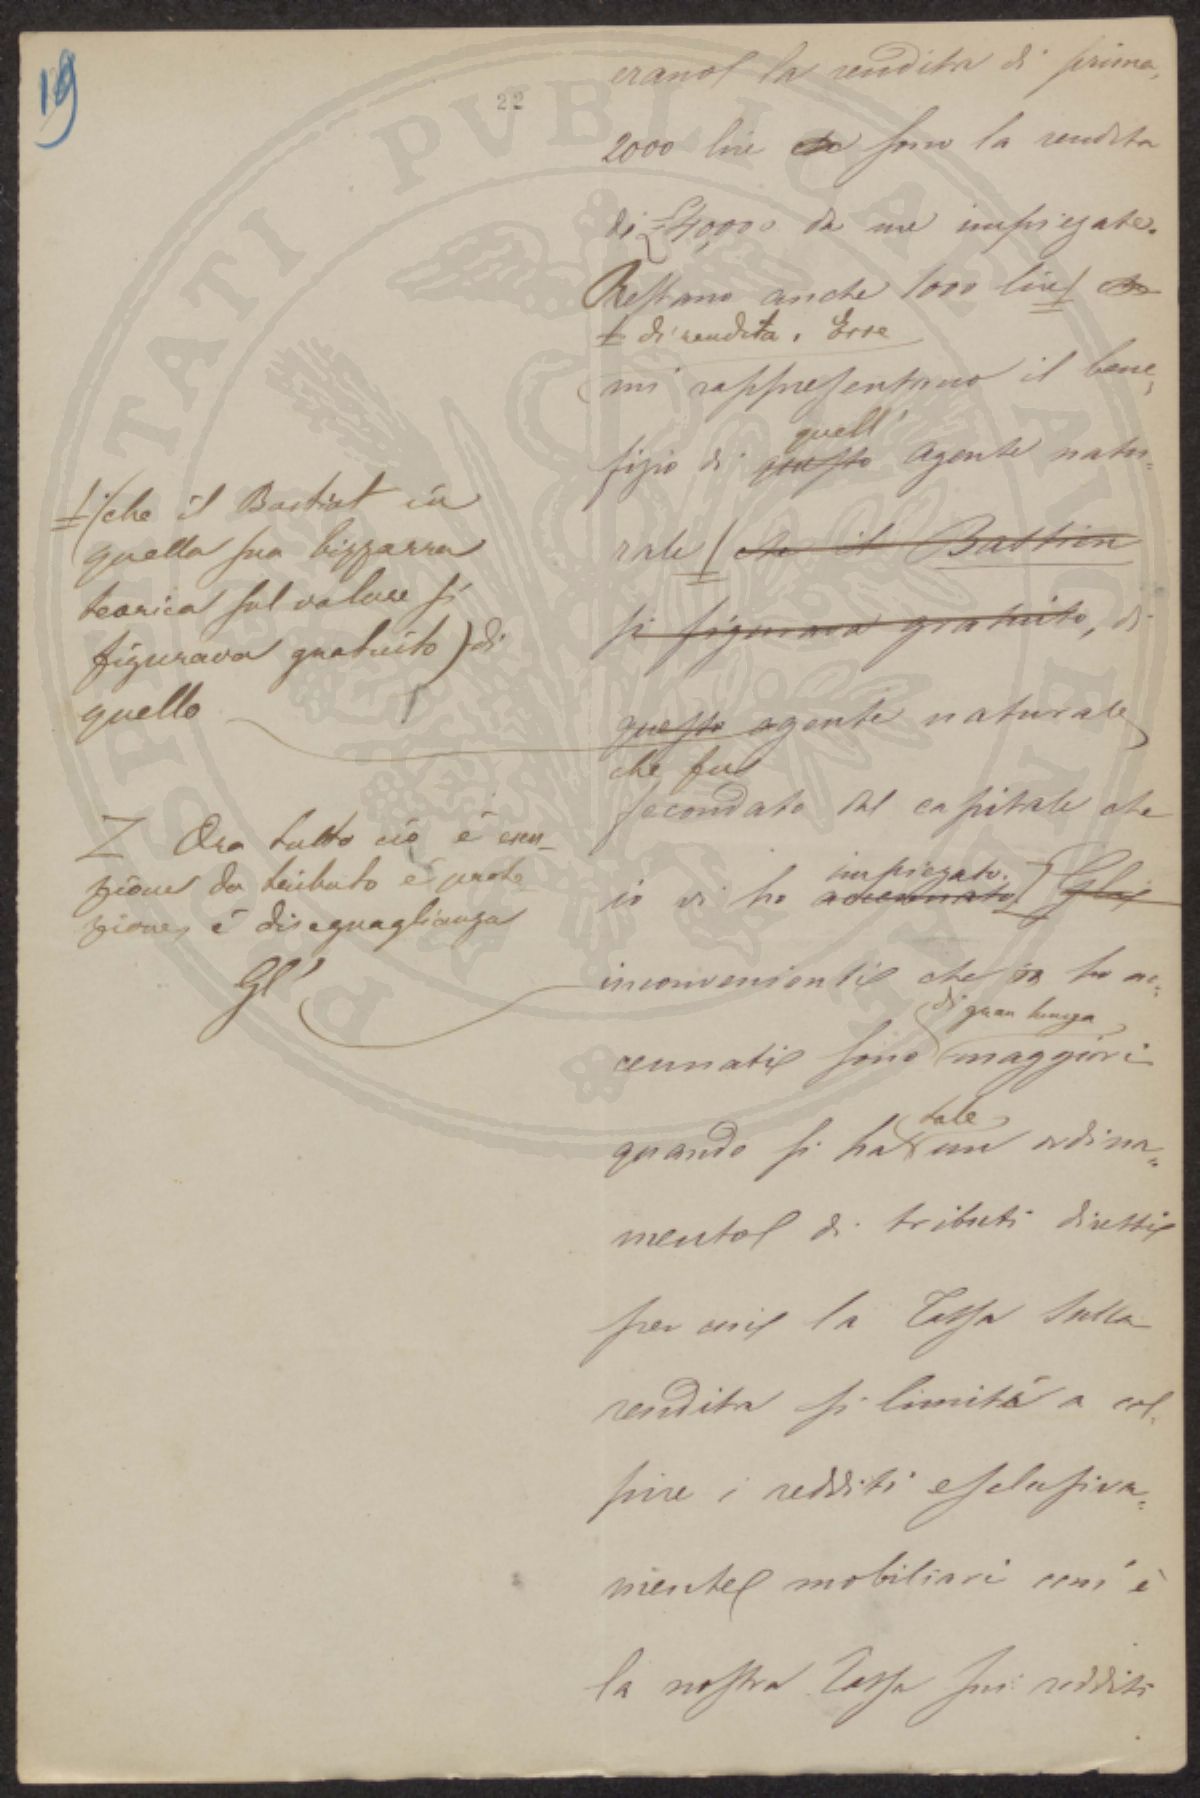 19
22
erano la rendita di prima,
2000 lire che sono la rendita
di £40,000 da me impiegate.
Restano anche 1000 lire che
di rendita. Esse
mi rappresentano il bene,
quell'
fizio di questo agente natu-
rale che il Bastien
si figurava gratuito, di
questo agente naturale
che fu
fecondato dal capitale che
impiegato.
io vi ho accennato. Gli
inconvenienti che io ho ac-
di gran lunga
cennati sono maggiori
tale
quando si ha un ordina-
mento di tributi diretti
per cui la Tassa sulla
rendita si limita a col-
pire i redditi esclusiva-
mente mobiliari com'è
la nostra Tassa sui redditi
(che il Bastiat in
quella sua bizzarra
teorica sul valore si
figurava gratuito) di
quello
Z Ora tutto ciò è esen-
zione da tributo è prote
zione, è diseguaglianza
Gl'
SPITATI PVBLICAE